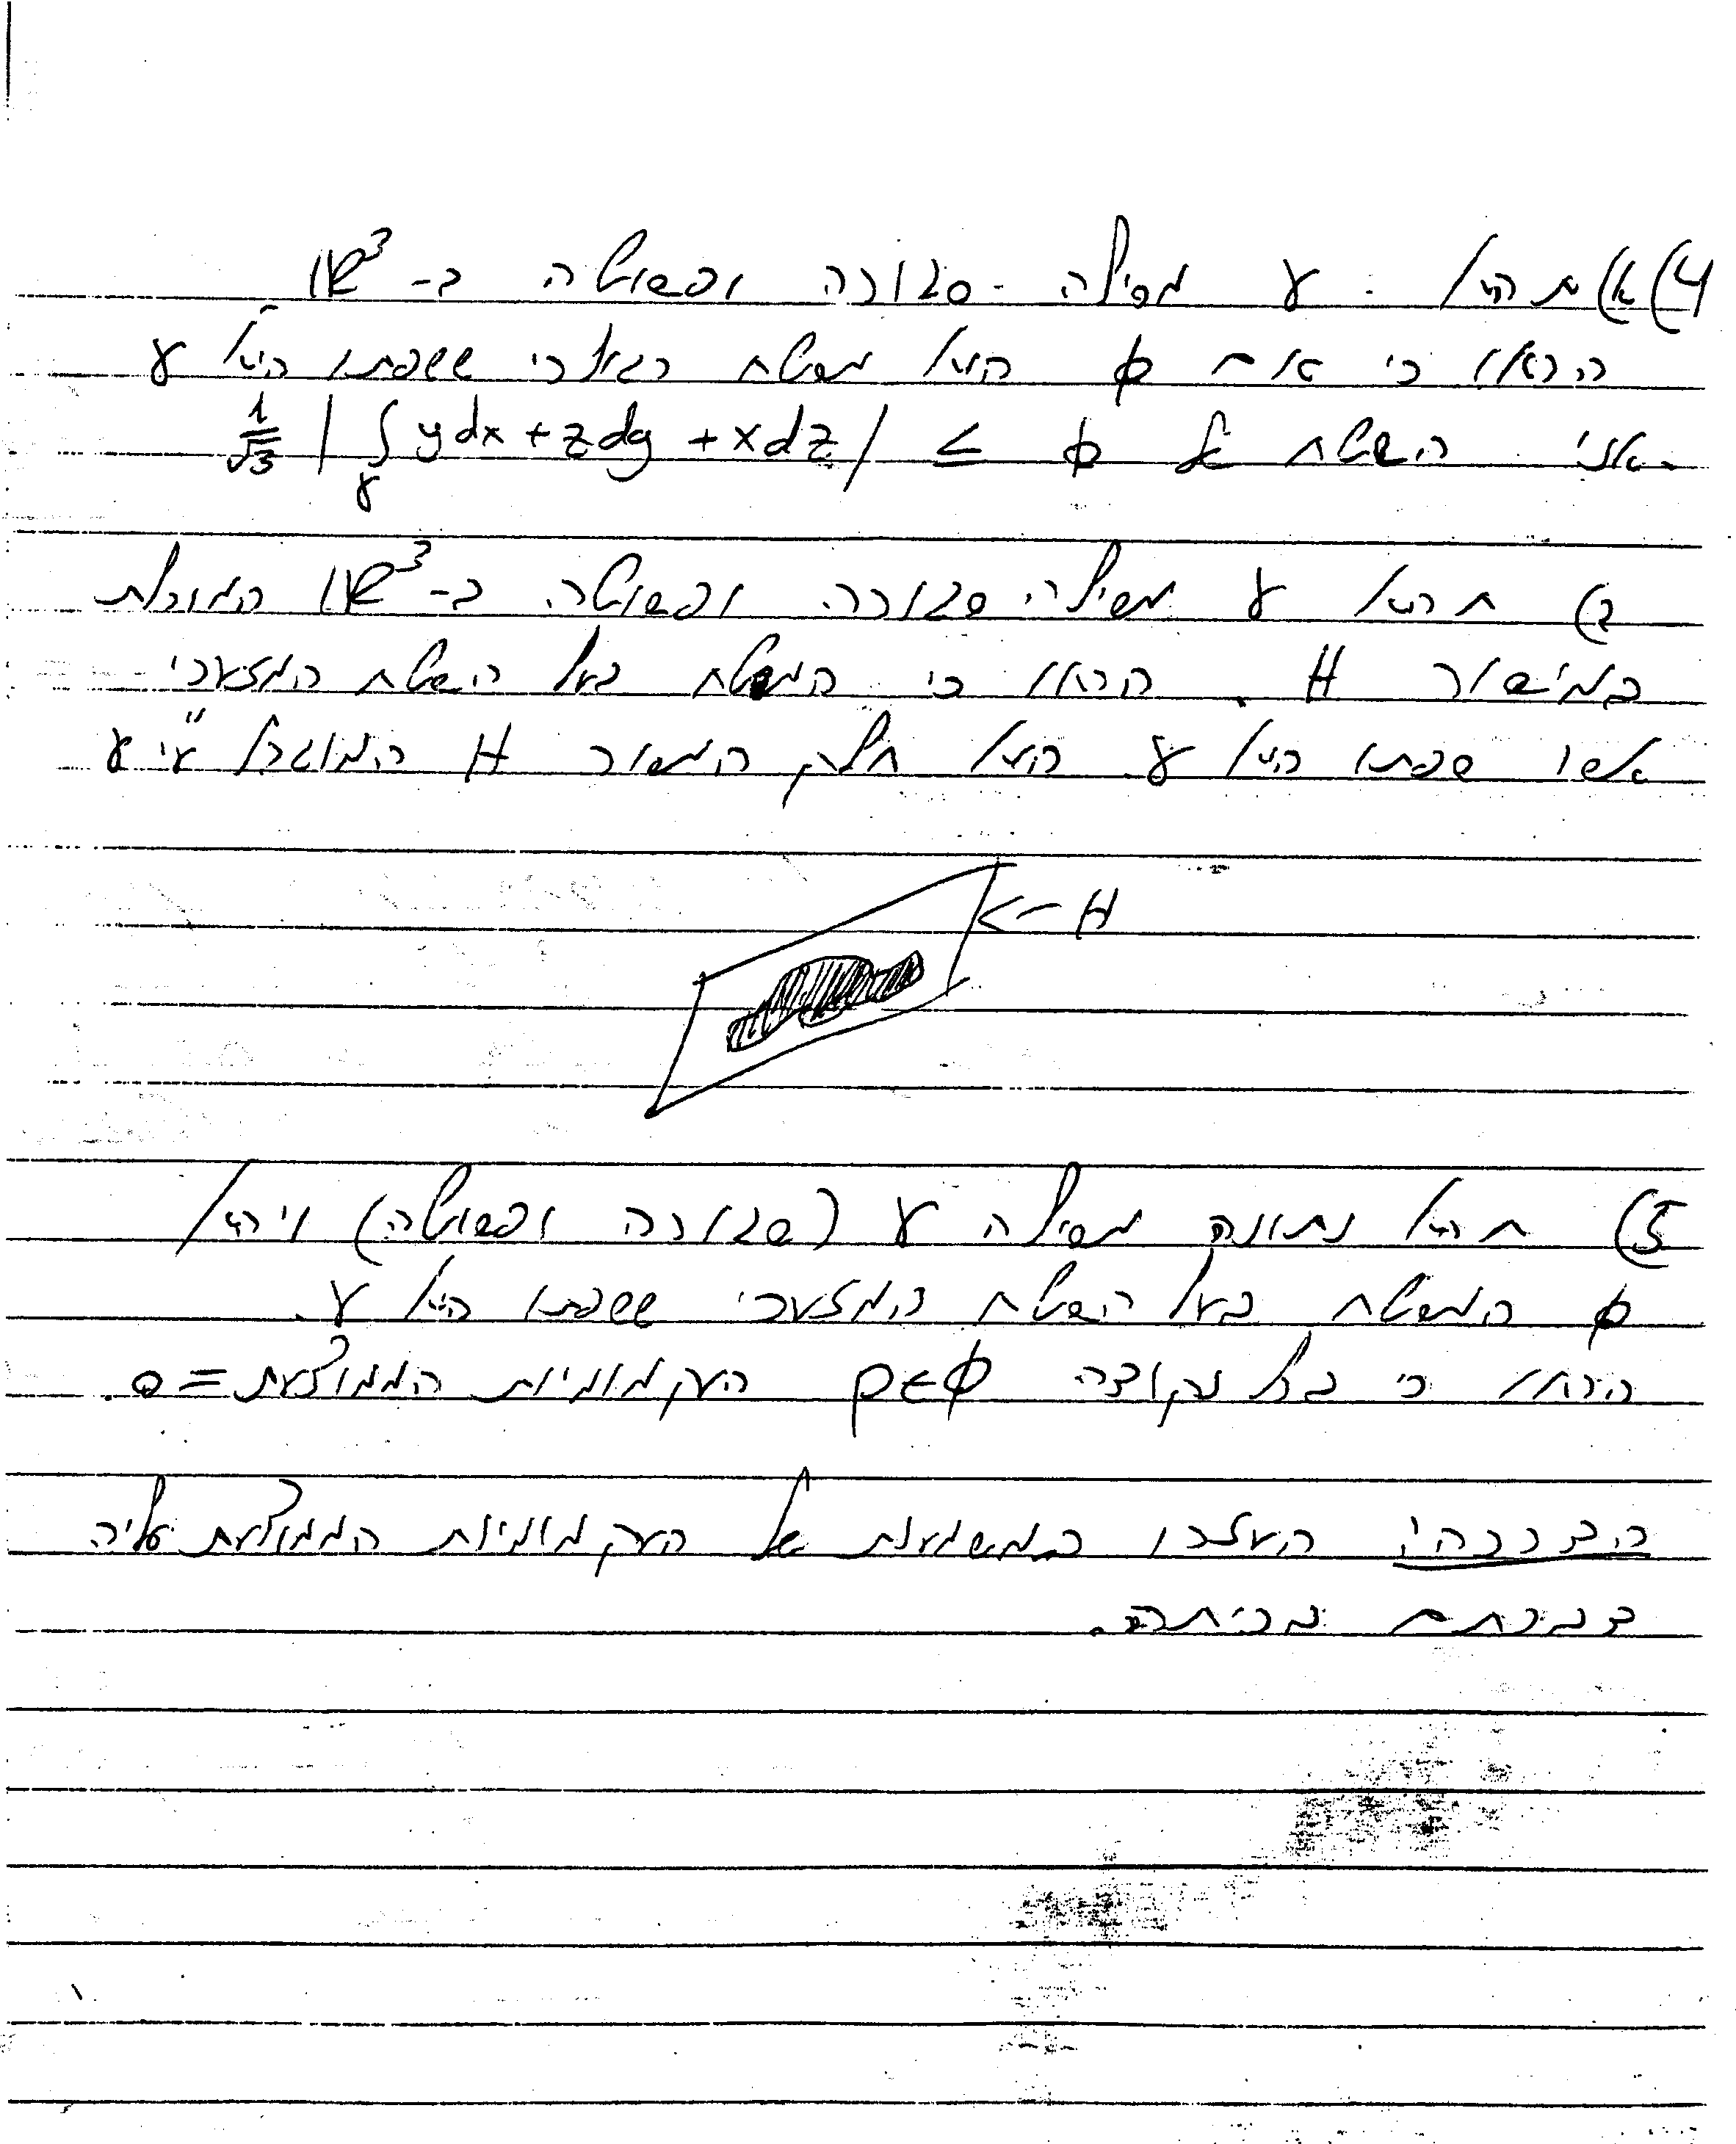 4) א) תהא γ מסילה סגורה ופשוטה ב- ℝ³
הראו כי אם ϕ הוא משטח רגולרי ששפתו היא γ
אזי השטח של ϕ ≥ 1/√3 |∫_γ ydx + zdy + xdz|
ב) תהא γ מסילה סגורה ופשוטה ב- ℝ³ המוכלת
במישור H. הראו כי המשטח בעל השטח המזערי
אשר שפתו היא γ הוא חלק המישור H המוגבל ע"י γ
H
5) תהא נתונה מסילה γ (סגורה ופשוטה) ויהא
ϕ המשטח בעל השטח המזערי ששפתו היא γ.
הראו כי בכל נקודה p∈ϕ העקמומיות הממוצעת = 0.
הדרכה: העזרו במשמעות של העקמומיות הממוצעת עליה
דברתם בכיתה.